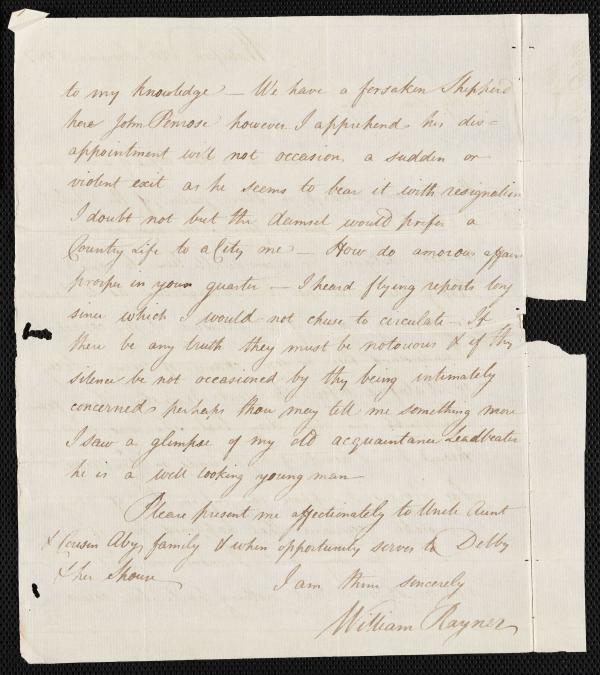 to my knowledge — We have a forsaken Shepherd
here John Penrose however I apprehend his dis=
appointment will not occasion a sudden or
violent exit as he seems to bear it with resignation
I doubt not but the damsel would prefer a
Country Life to a City one — How do amorous affairs
prosper in your quarter — I heard flying reports long
since which I would not chuse to circulate — If
there be any truth they must be notorious & if thy
silence be not occasioned by thy being intimately
concerned perhaps thou may tell me something more
I saw a glimpse of my old acquaintance Leadbeater
he is a well looking young man
Please present me affectionately to Uncle Aunt
& Cousin Abys family & when opportunity serves to Debby
& her Spouse
I am thine sincerely
William Rayner